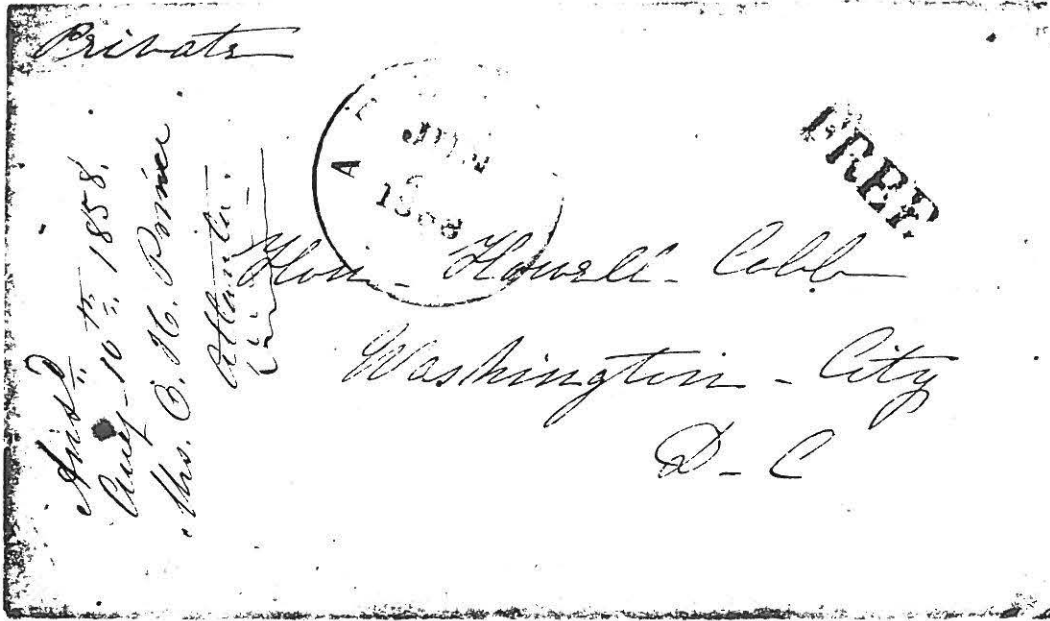 Private
A T
JUN
1858
FREE
Hon. Howell Cobb
Washington - City
D - C
Ansd
Aug - 10th 1858.
Mrs. O. H.
Atlanta.